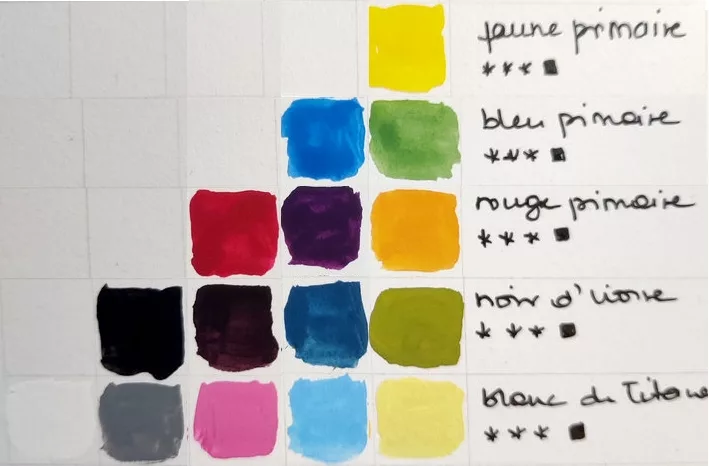 jaune primaire
*** ■
bleu pimaire
*** ■
rouge primaire
*** ■
noir d'ivoire
*** ■
blanc de Titane
*** ■